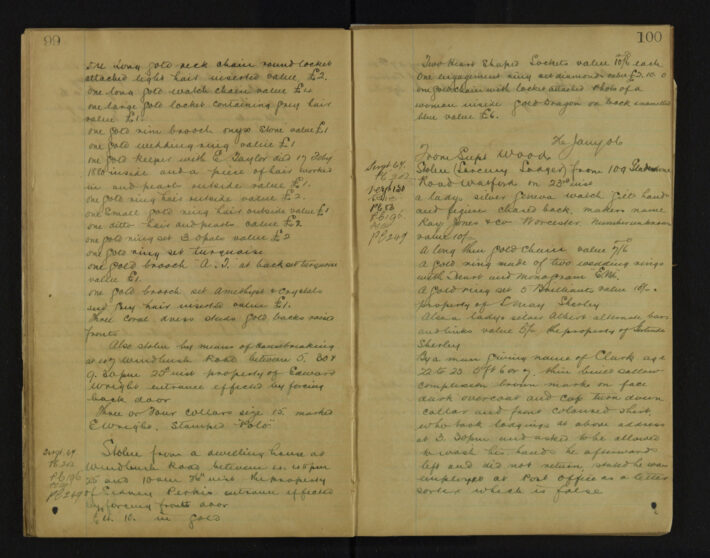 99
one Long gold neck chain round locket
attached light hair inserted value £2.
one long gold watch chain value £4
one large gold locket containing grey hair
value £1.
one gold rim brooch onyx stone value £1
one gold wedding ring value £1
one gold keeper with E Taylor died 17 Feby
1880 inside and a piece of hair worked
in and pearl outside value £1.
one gold ring hair outside value £2.
one small gold ring hair outside value £1
one ditto hair and pearls value £2
one gold ring set 3 opals value £2
one gold ring set turquoise
one gold brooch A.J. at back set turquoise
value £1.
one gold brooch set amethyst & crystals
and grey hair inserted value £1.
Three coral dress studs gold backs
fronts
Also stolen by means of housebreaking
at Windhush Road between 5.30 &
9.30pm 25th inst property of Edward
Wright entrance effected by forcing
back door
Three or Four collars size 15 marked
E Wright, Stamped "Polo"
Sergt 69
Pb 202
Pb 196
Pb 249
Stolen from a dwelling house at
Windhush Road between 11.45pm
25th and 10am 26th inst the property
of Perkin entrance effected
by forcing front door
£4. 10. in gold
100
Two Heart Shaped Lockets value 10/6 each
One engagement ring set diamonds value £2.10.0
one gold chain with locket attached photo of a
woman inside gold Dragon on back enamelled
blue value £6.
26 Jany 06
From Supt Wood
Sergt 69.
Pb 202
Pb 52
Pb 196
Pb 249
Stolen (Larceny Lodger) from 109 Gladstone
Road Watford on 23rd inst
a ladys silver Geneva watch gilt hands
and figure chased back, makers name
Kay Jones & Co Worcester, Number unknown
value 10/-
A long thin gold Chain value 7/6
A gold ring made of two wedding rings
with Heart and Monogram EM.
A Gold ring set 5 Brilliants value 10/-
property of Emay Sherley
Also a ladys silver Albert alternate bars
and links value 5/- the property of Gertrude
Sherley
By a man giving name of Clark age
22 to 23 5ft 6 or 7, thin build sallow
complexion brown marks on face
dark overcoat and cap turn down
collar and front coloured shirt,
who took lodgings at above address
at 3.30pm and asked to be allowed
to wash his hands he afterwards
left and did not return, stated he was
employed at Post Office as a letter
sorter which is false